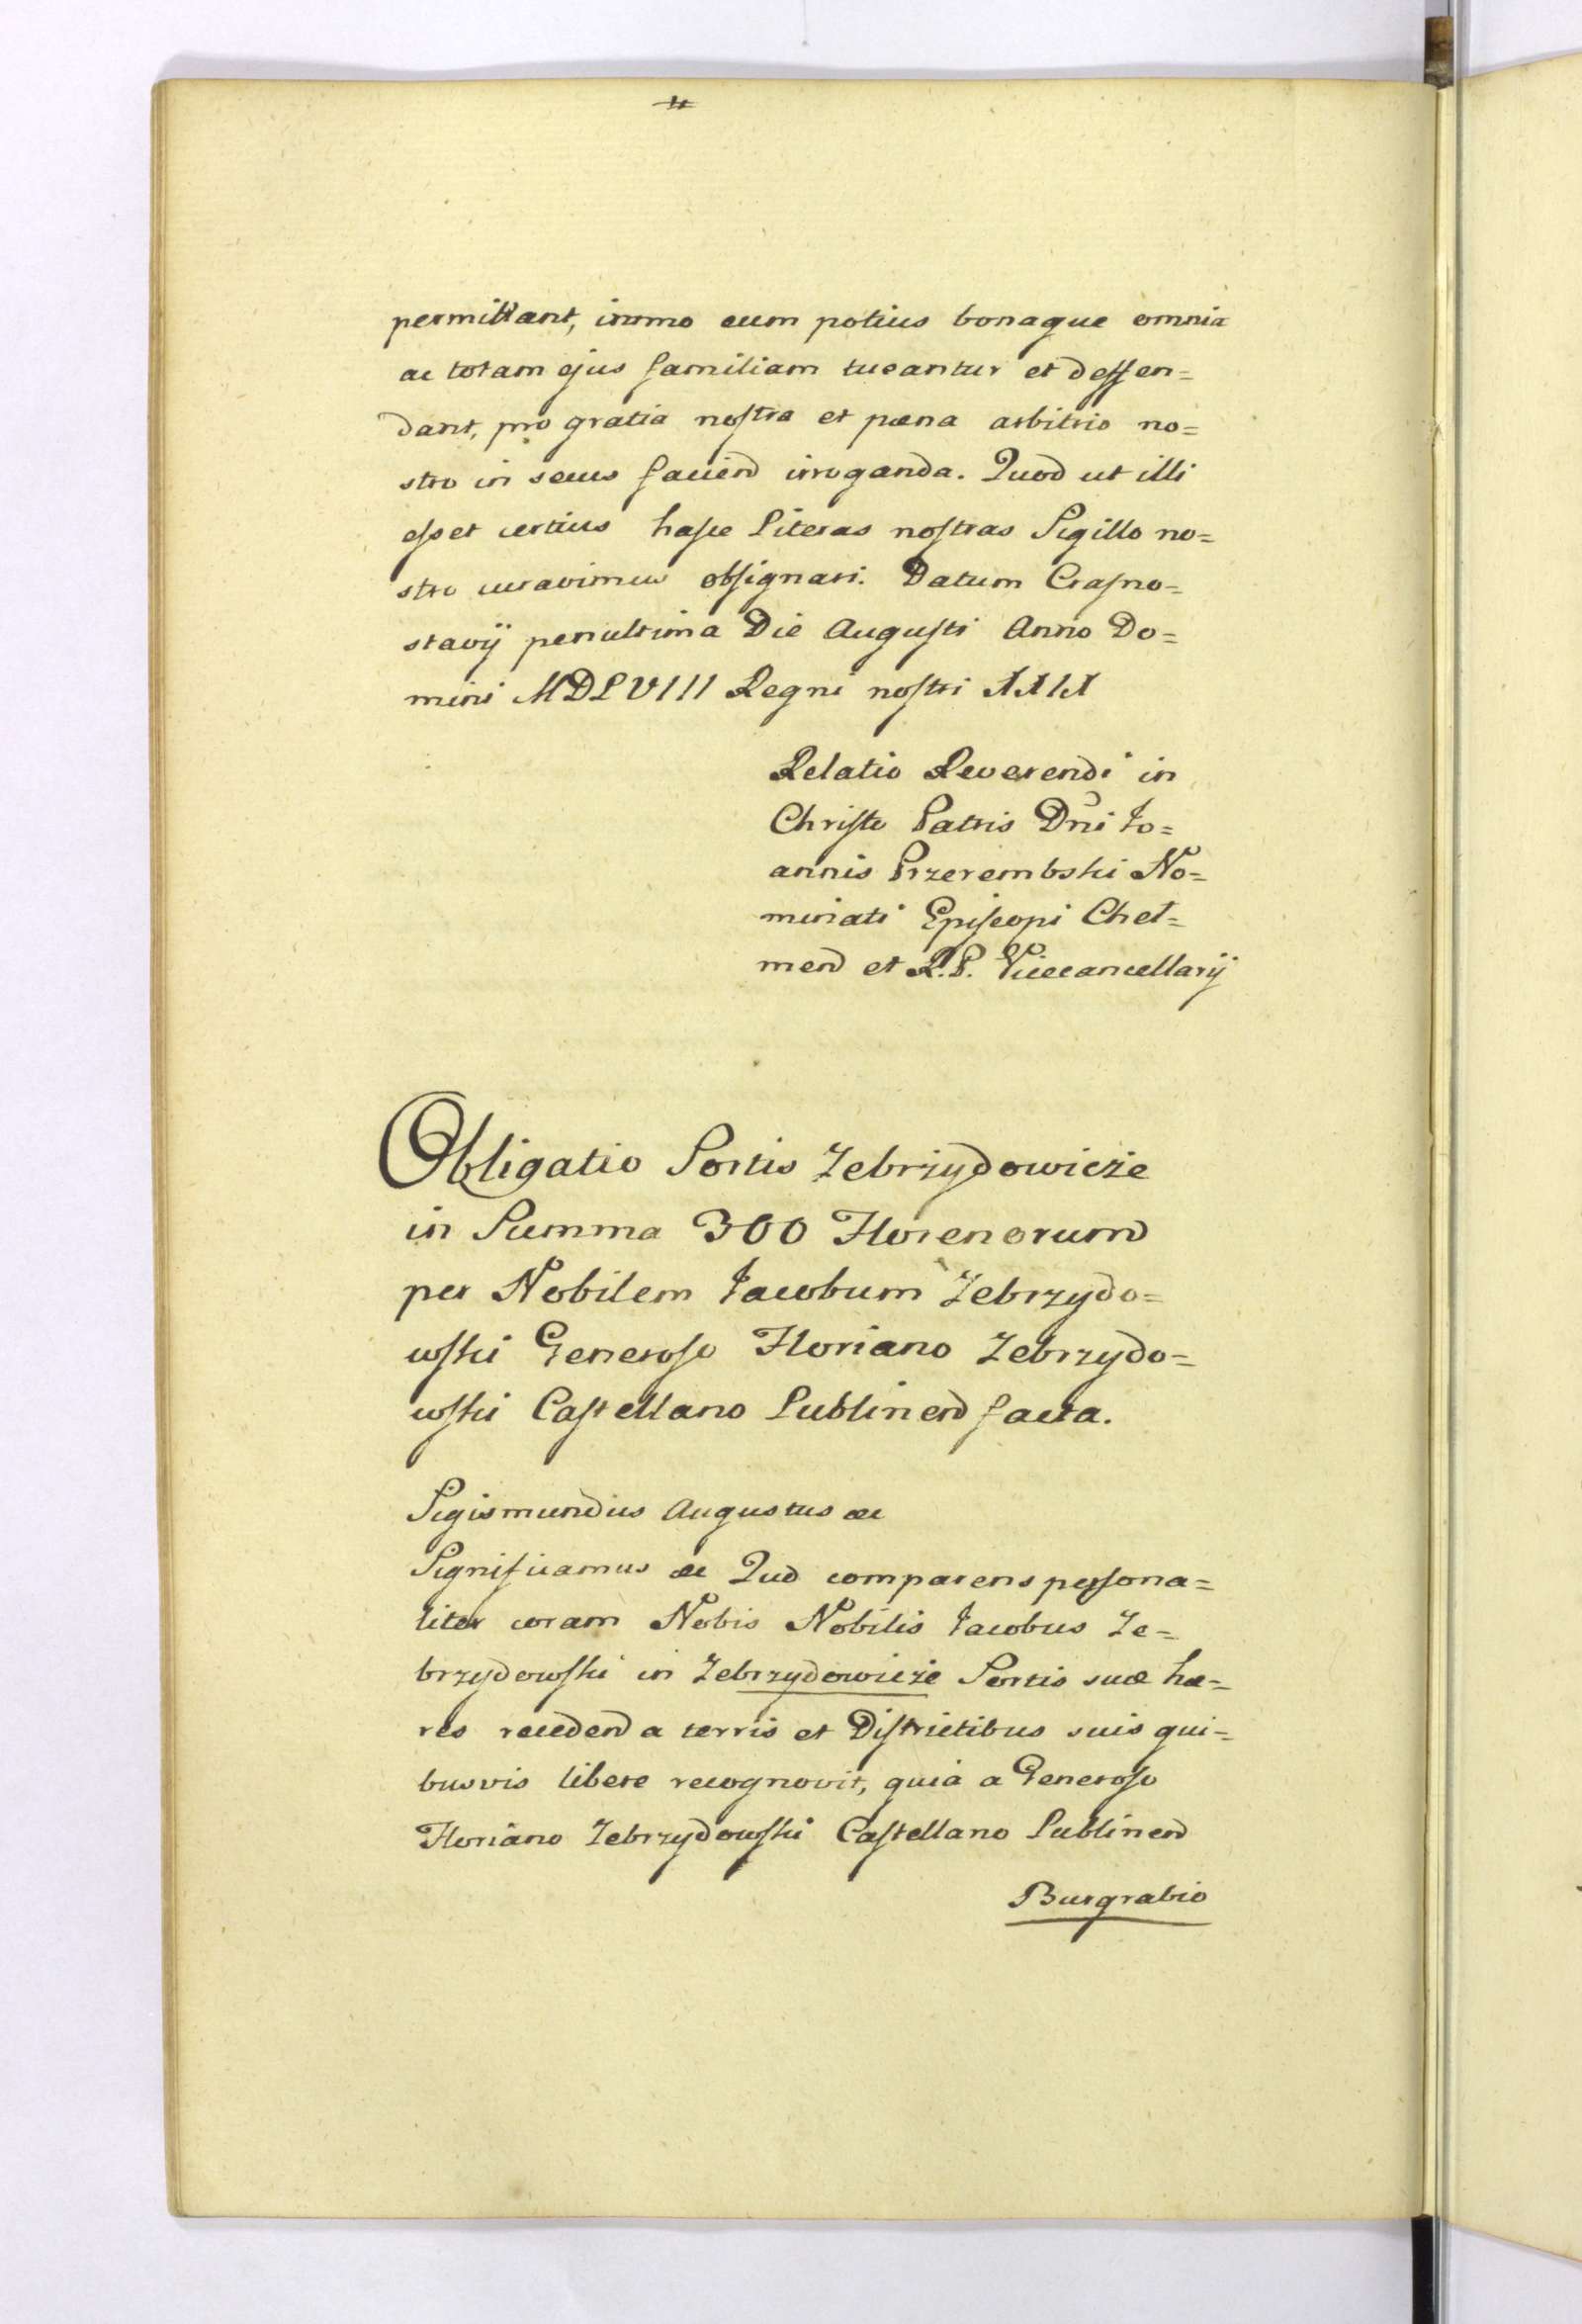 permittant, immo eum potius bonaque omnia
ac totam ejus familiam tueantur et deffen=
dant, pro gratia nostra et pœna arbitrio no=
stro in secus faciend irroganda. Quod ut illi
esset certius hasce Literas nostras Sigillo no=
stro curavimus obsignari. Datum Crasno=
stavÿ penultima Die Augusti Anno Do=
mini MDLVIII Regni nostri XXIX
Relatio Reverendi in
Christo Patris Dni Jo=
annis Przerembski No=
minati Episcopi Cheł=
mend et R. P. Vicecancellarÿ
Obligatio Sortis Zebrżydowicże
in Summa 300 Florenorum
per Nobilem Jacobum Zebrzydo=
wski Generoso Floriano Zebrzydo=
wski Castellano Lublinend facta.
Sigismundus Augustus &c
Significamus &c Quod comparens persona=
liter coram Nobis Nobilis Jacobus Ze=
brzydowski in Zebrzydowicże Sortis suæ hæ=
res recedend a terris et Districtibus suis qui=
busvis libere recognovit, quia a Generoso
Floriano Zebrzydowski Castellano Lublinend
Burgrabio